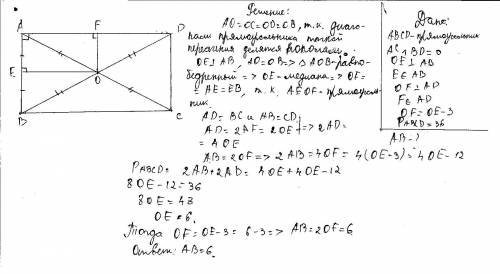 A
F
D
E
O
B
C
Решение:
AO=OC=OD=OB, т.к. диаго-
нали прямоугольника точкой
пересечения делятся пополам.
OE⊥AB, AO=OB=>△AOB-равно-
бедренный => OE-медиана=>OF=
=AE=EB, т.к. AEOF-прямоуголь-
ник.
AD=BC и AB=CD
AD=2AF=2OE=>2AD=
=4OE
AB=2OF=>2AB=4OF=4(OE-3)=4OE-12
PABCD=2AB+2AD=4OE+4OE-12
8OE-12=36
8OE=48
OE=6.
Тогда OF=OE-3=6-3=>AB=2OF=6
Ответ: AB=6.
Дано:
ABCD-прямоугольник
AC∧BD=O
OE⊥AB
E∈AB
OF⊥AD
F∈AD
OF=OE-3
PABCD=36
AB-?